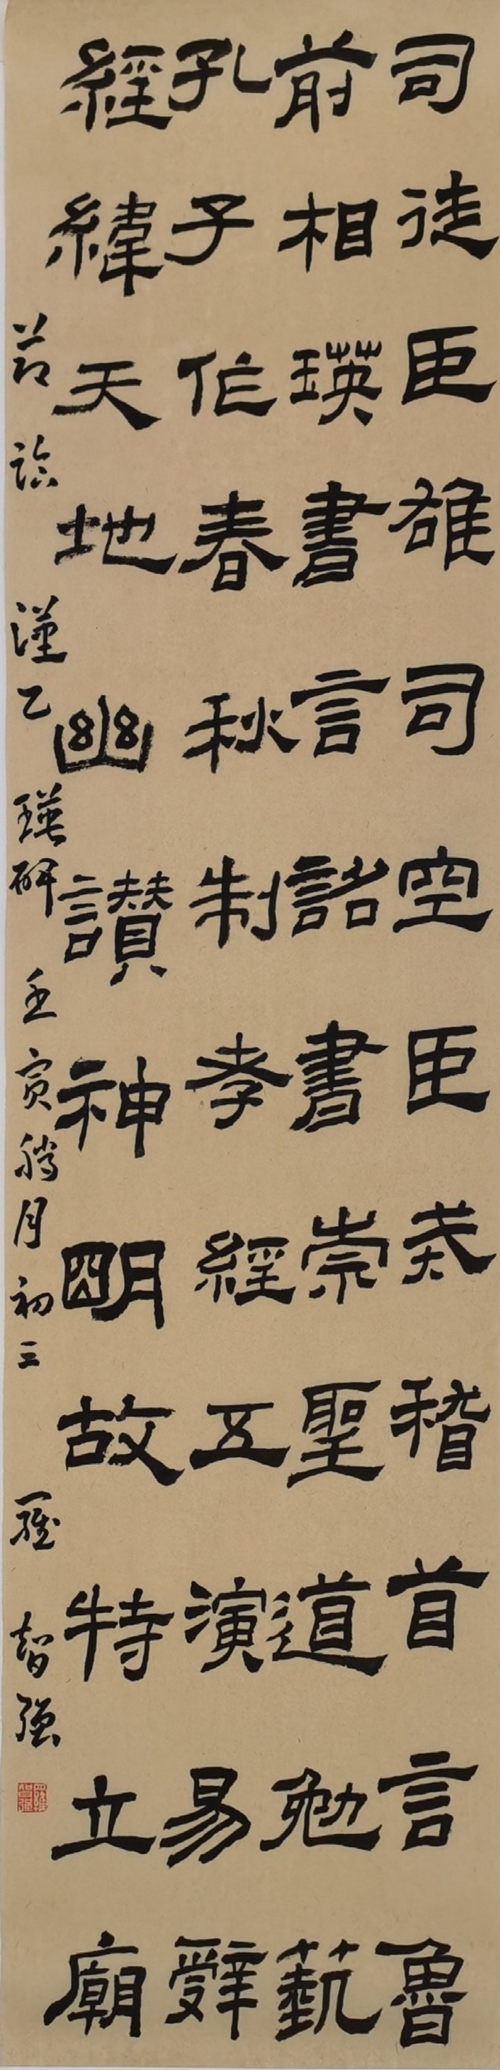 司徒臣雄司空臣戒稽首言魯
前相瑛書言詔書崇聖道勉蓺
孔子作春秋制孝經五演易辭
經緯天地幽讚神明故特立廟
節臨漢乙瑛碑 壬寅臘月初三 羅智强